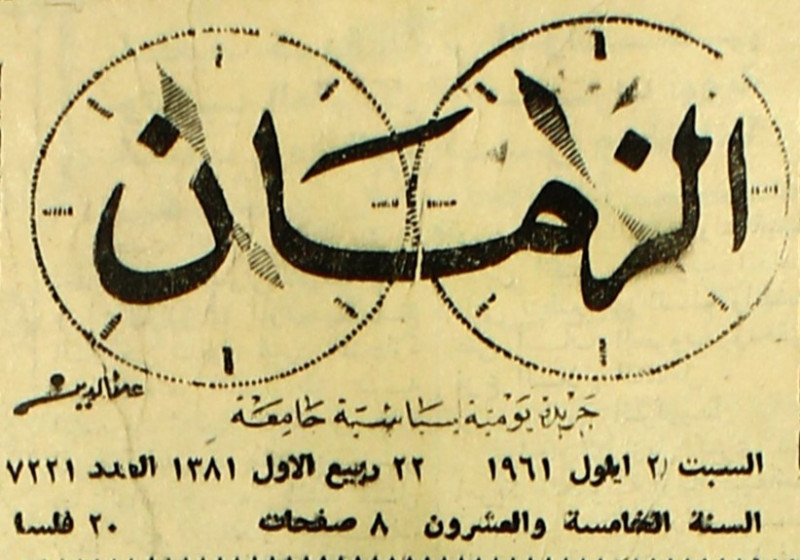 الزمان
جريدة يومية سياسية جامعة
السبت ٢ ايلول ١٩٦١ ٢٢ ربيع الاول ١٣٨١ العدد ٧٢٢١
السنة الخامسة والعشرون ٨ صفحات ٢٠ فلسا